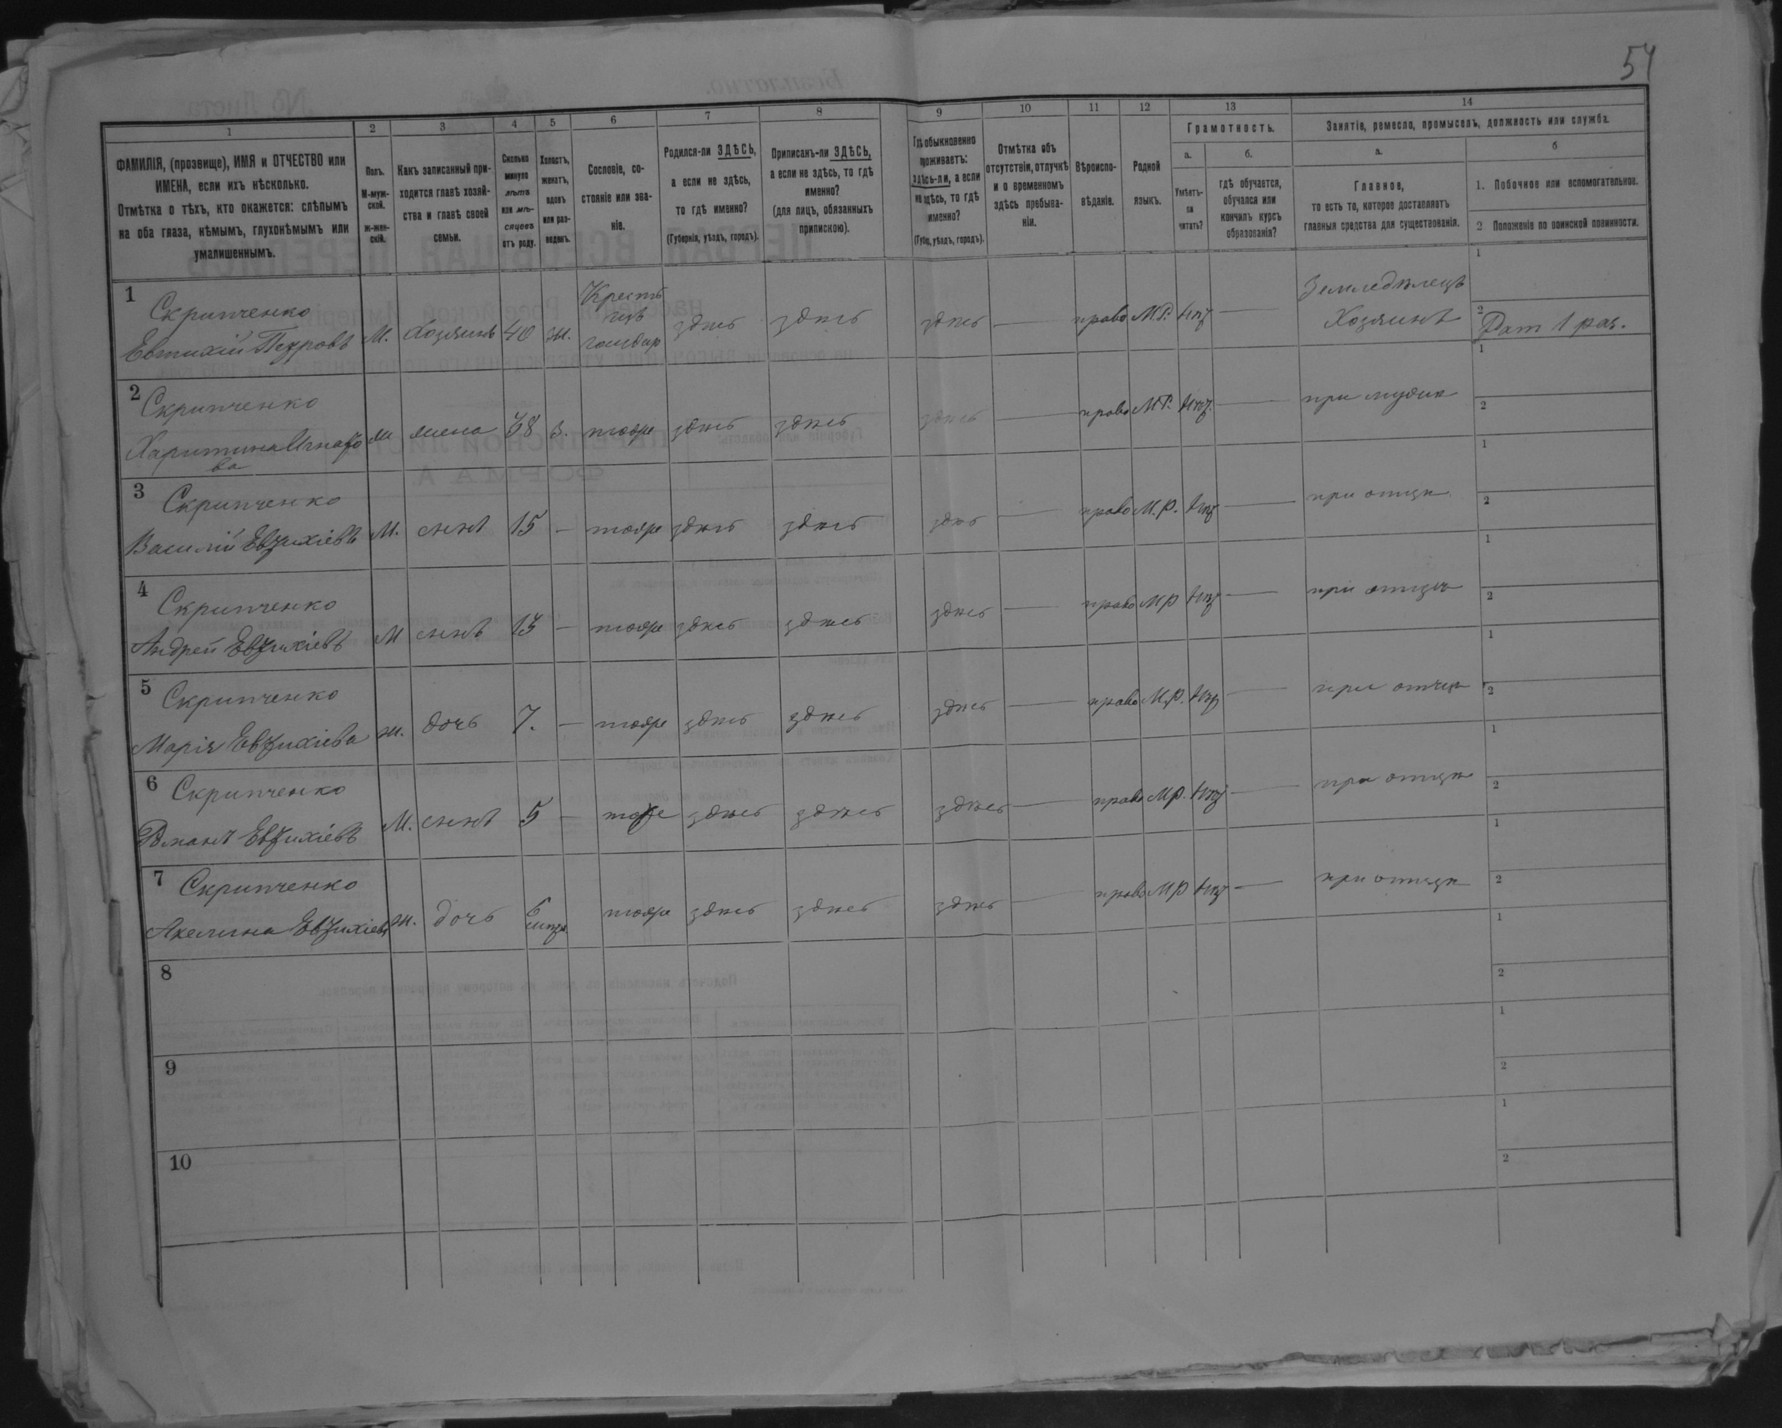 54
1 2 3 4 5 6 7 8 9 10 11 12 13 14
ФАМИЛІЯ, (прозвище), ИМЯ и ОТЧЕСТВО или
ИМЕНА, если ихъ нѣсколько.
Отмѣтка о тѣхъ, кто окажется: слѣпымъ
на оба глаза, нѣмымъ, глухонѣмымъ или
умалишеннымъ.
Полъ.
М-муж-
ской.
Ж-жен-
скій.
Какъ записанный при-
ходится главѣ хозяй-
ства и главѣ своей
семьи.
Сколько
минуло
лѣтъ
или мѣ-
сяцевъ
отъ роду.
Холостъ,
женатъ,
вдовъ
или раз-
веденъ.
Сословіе, со-
стояніе или зва-
ніе.
Родился-ли ЗДѢСЬ,
а если не здѣсь,
то гдѣ именно?
(Губернія, уѣздъ, городъ).
Приписанъ-ли ЗДѢСЬ,
а если не здѣсь, то гдѣ
именно?
(для лицъ, обязанныхъ
припискою).
Гдѣ обыкновенно
проживаетъ:
здѣсь-ли, а если
не здѣсь, то гдѣ
именно?
(Губ., уѣздъ, городъ).
Отмѣтка объ
отсутствіи, отлучкѣ
и о временномъ
здѣсь пребыва-
ніи.
Вѣроиспо-
вѣданіе.
Родной
языкъ.
Грамотность.
а.
Умѣетъ-
ли
читать?
б.
гдѣ обучается,
обучался или
кончилъ курсъ
образованія?
Занятіе, ремесло, промыселъ, должность или служба.
а.
Главное,
то есть то, которое доставляетъ
главныя средства для существованія.
б
1. Побочное или вспомогательное.
2 Положеніе по воинской повинности.
1
Скрипченко
Евтихій Петровъ М. Хозяинъ 40 ж. здѣсь здѣсь здѣсь — право М.Р. нѣт —
Земледѣлецъ
Хозяинъ
1
2
Рат 1 раз.
2
Скрипченко
Харитина ж жена 38 з. тоже здѣсь здѣсь здѣсь — право М.Р. нѣт — при мужѣ
1
2
3
Скрипченко
Василій Евтихіевъ М. сынъ 15 — тоже здѣсь здѣсь здѣсь — право М.Р. нѣт — при отцѣ
1
2
4
Скрипченко
Андрей Евтихіевъ М сынъ 13 — тоже здѣсь здѣсь здѣсь — право М.Р нѣт — при отцѣ
1
2
5
Скрипченко
Марія Евтихіева ж. дочь 7. — тоже здѣсь здѣсь здѣсь — право М.Р. нѣт — при отцѣ
1
2
6
Скрипченко
Романъ Евтихіевъ М. сынъ 5 — тоже здѣсь здѣсь здѣсь — право М.Р. нѣт — при отцѣ
1
2
7
Скрипченко
Акелина Евтихіева ж. дочь 6 тоже здѣсь здѣсь здѣсь — право М.Р нѣт — при отцѣ
1
2
8
1
2
9
1
2
10
1
2